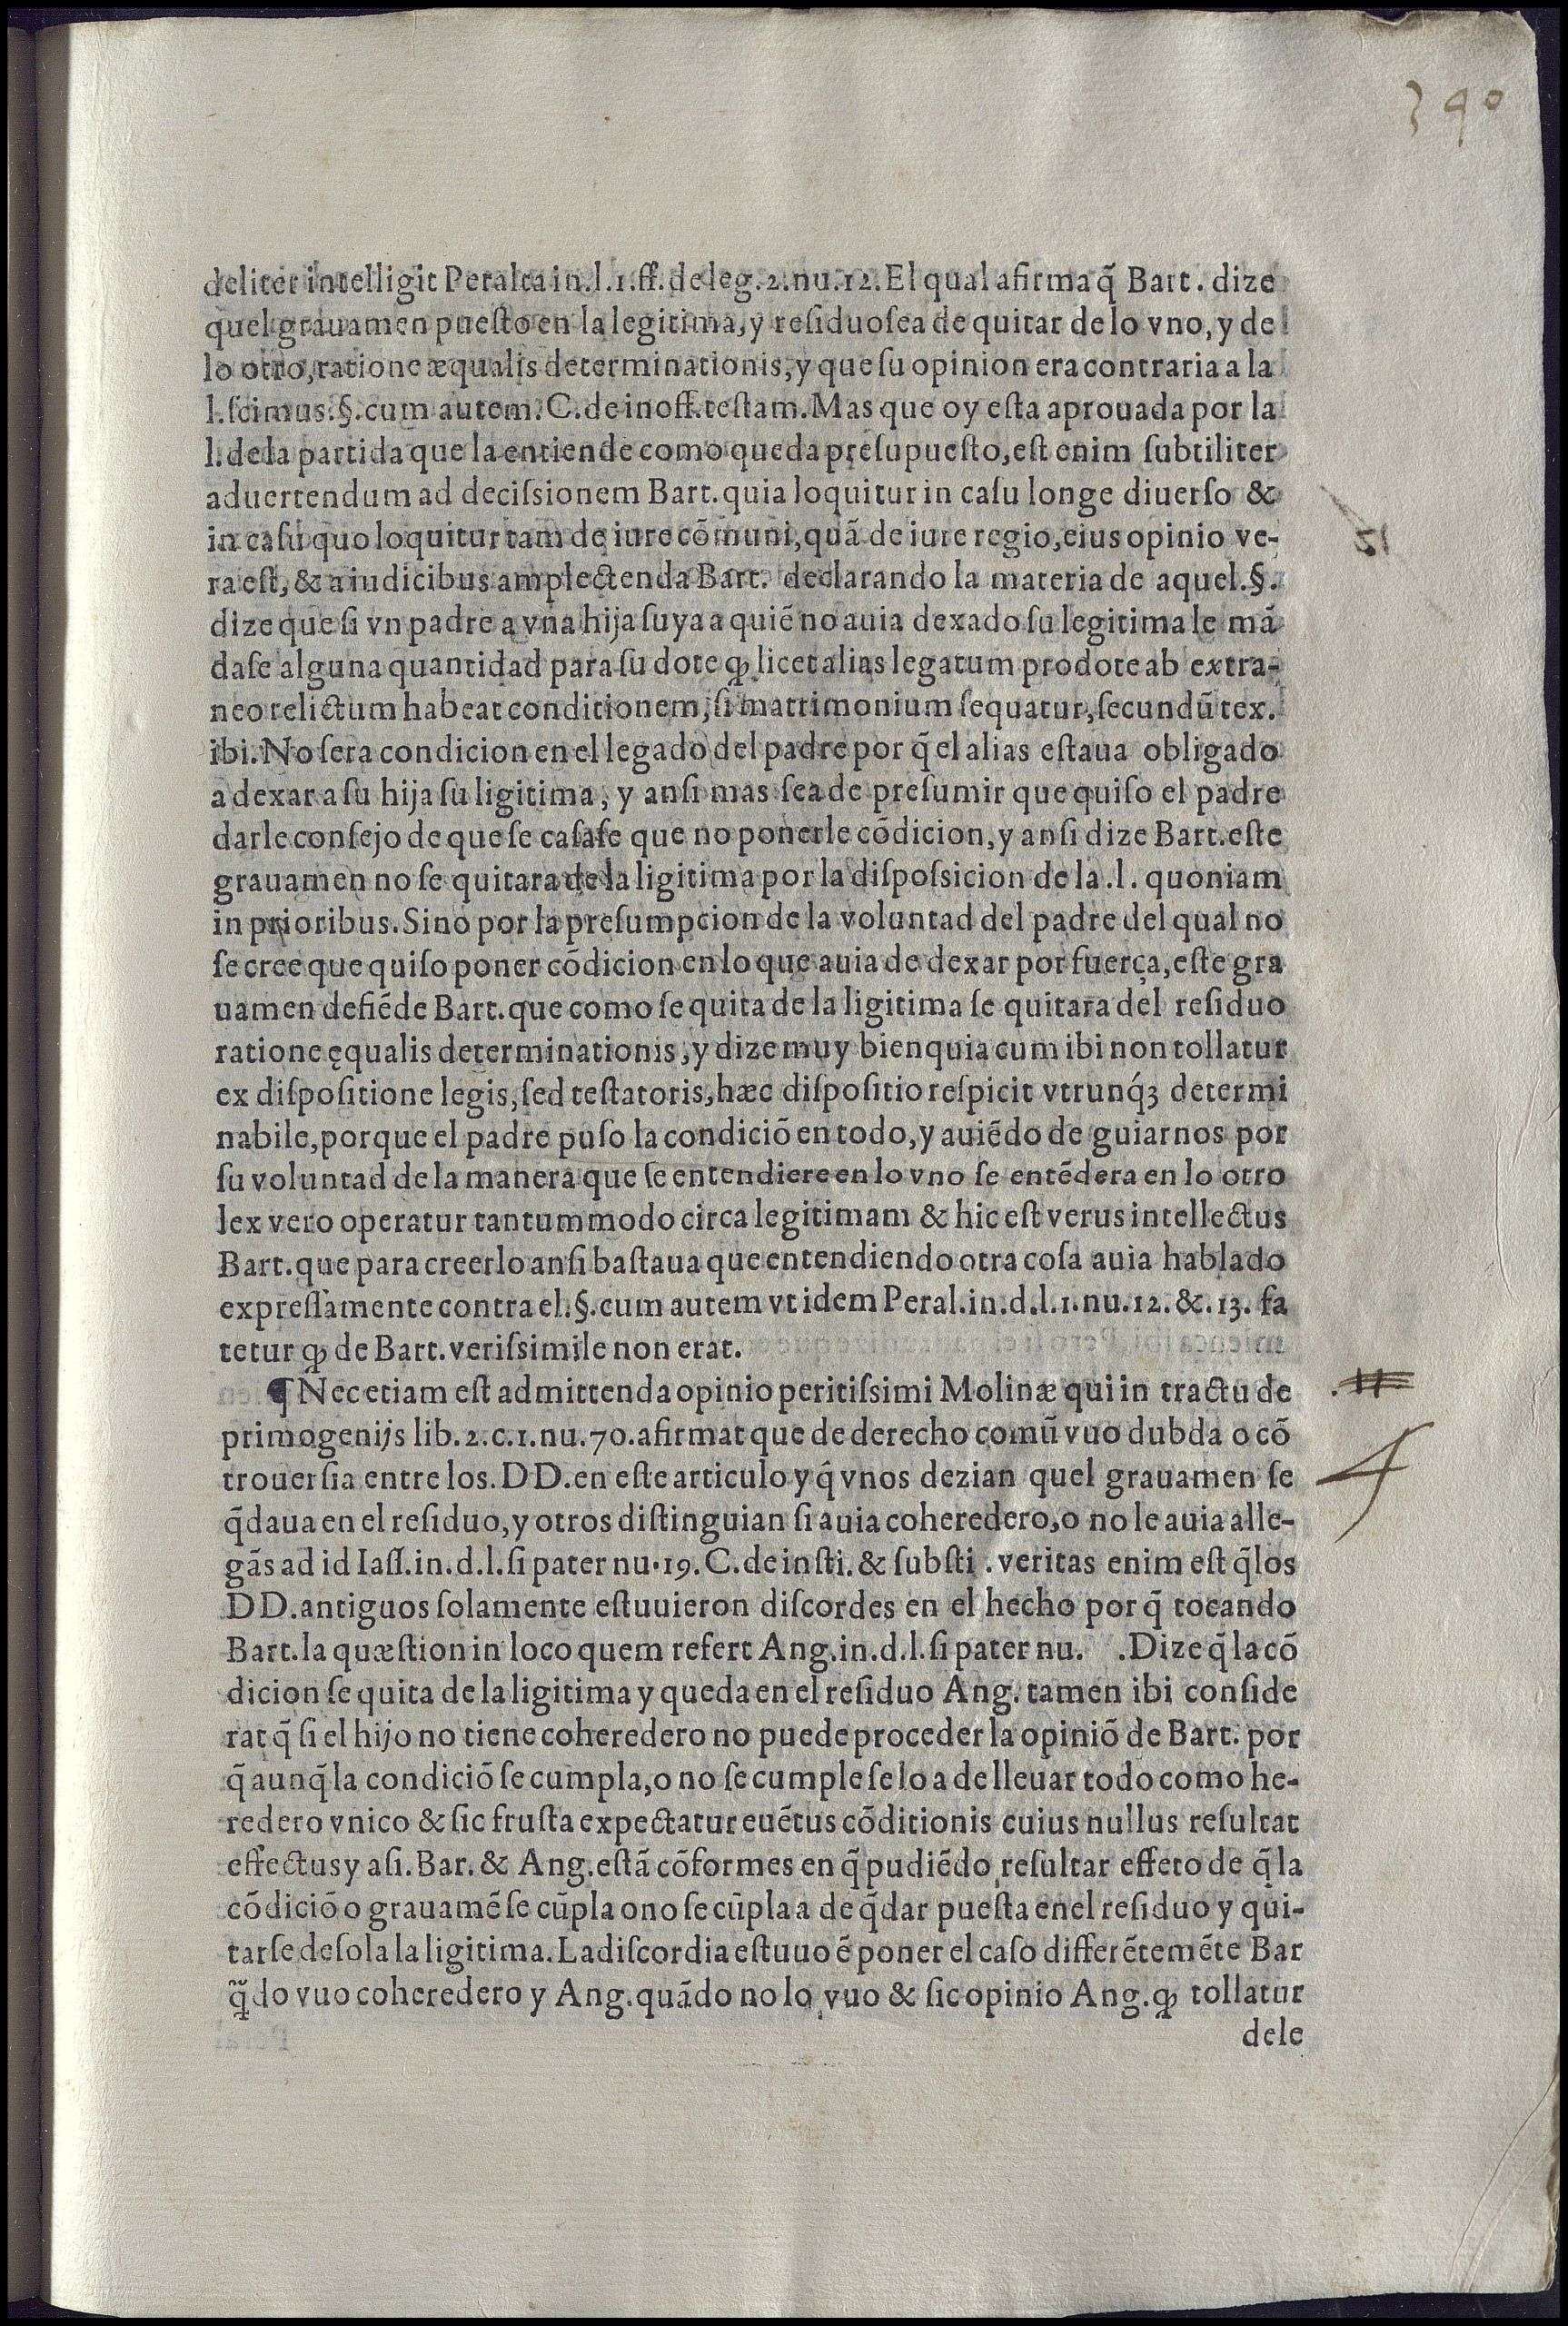 390
deliter intelligit Peralta in.l.1.ff.de leg.2.nu.12.El qual afirma q̃ Bart. dize
quel grauamen puesto en la legitima, y residuo sea de quitar de lo vno, y de
lo otro, ratione æqualis determinationis, y que su opinion era contraria a la
l.scimus.§.cum autem.C.de inoff.testam.Mas que oy esta aprouada por la
l.de la partida que la entiende como queda presupuesto, est enim subtiliter
aduertendum ad decissionem Bart.quia loquitur in casu longe diuerso &
in casu quo loquitur tam de iure cõmuni, quã de iure regio, eius opinio ve-
ra est, & a iudicibus amplectenda Bart. declarando la materia de aquel.§.
dize que si vn padre a vna hija suya a quiẽ no auia dexado su legitima le mã
dase alguna quantidad para su dote ꝙ licet alias legatum pro dote ab extra-
neo relictum habeat conditionem, si matrimonium sequatur, secundũ tex.
ibi.No sera condicion en el legado del padre por q̃ el alias estaua obligado
a dexar a su hija su ligitima, y ansi mas sea de presumir que quiso el padre
darle consejo de que se casase que no ponerle cõdicion, y ansi dize Bart.este
grauamen no se quitara de la ligitima por la dispossicion de la .l. quoniam
in prioribus.Sino por la presumpcion de la voluntad del padre del qual no
se cree que quiso poner cõdicion en lo que auia de dexar por fuerça, este gra
uamen defiẽde Bart.que como se quita de la ligitima se quitara del residuo
ratione ęqualis determinationis, y dize muy bien quia cum ibi non tollatur
ex dispositione legis, sed testatoris, hæc dispositio respicit vtrunq́ꝫ determi
nabile, porque el padre puso la condiciõ en todo, y auiẽdo de guiarnos por
su voluntad de la manera que se entendiere en lo vno se entẽdera en lo otro
lex vero operatur tantummodo circa legitimam & hic est verus intellectus
Bart.que para creerlo ansi bastaua que entendiendo otra cosa auia hablado
expressamente contra el.§.cum autem vt idem Peral.in.d.l.1.nu.12.&.13. fa
tetur ꝙ de Bart.verissimile non erat.
¶ Nec etiam est admittenda opinio peritissimi Molinæ qui in tractu de
primogenijs lib.2.c.1.nu.70.afirmat que de derecho comũ vuo dubda o cõ
trouersia entre los.DD.en este articulo y q̃ vnos dezian quel grauamen se
q̃daua en el residuo, y otros distinguian si auia coheredero, o no le auia alle-
gãs ad id Iass.in.d.l.si pater nu.19.C.de insti.& substi .veritas enim est q̃ los
DD.antiguos solamente estuuieron discordes en el hecho por q̃ tocando
Bart.la quæstion in loco quem refert Ang.in.d.l.si pater nu. .Dize q̃ la cõ
dicion se quita de la ligitima y queda en el residuo Ang.tamen ibi conside
rat q̃ si el hijo no tiene coheredero no puede proceder la opiniõ de Bart. por
q̃ aunq̃ la condiciõ se cumpla, o no se cumple se lo a de lleuar todo como he-
redero vnico & sic frusta expectatur euẽtus cõditionis cuius nullus resultat
effectus y asi.Bar.& Ang.estã cõformes en q̃ pudiẽdo resultar effeto de q̃ la
cõdiciõ o grauamẽ se cũpla o no se cũpla a de q̃dar puesta en el residuo y qui-
tarse de sola la ligitima.La discordia estuuo ẽ poner el caso differẽtemẽte Bar
q̃do vuo coheredero y Ang.quãdo no lo vuo & sic opinio Ang.ꝙ tollatur
dele